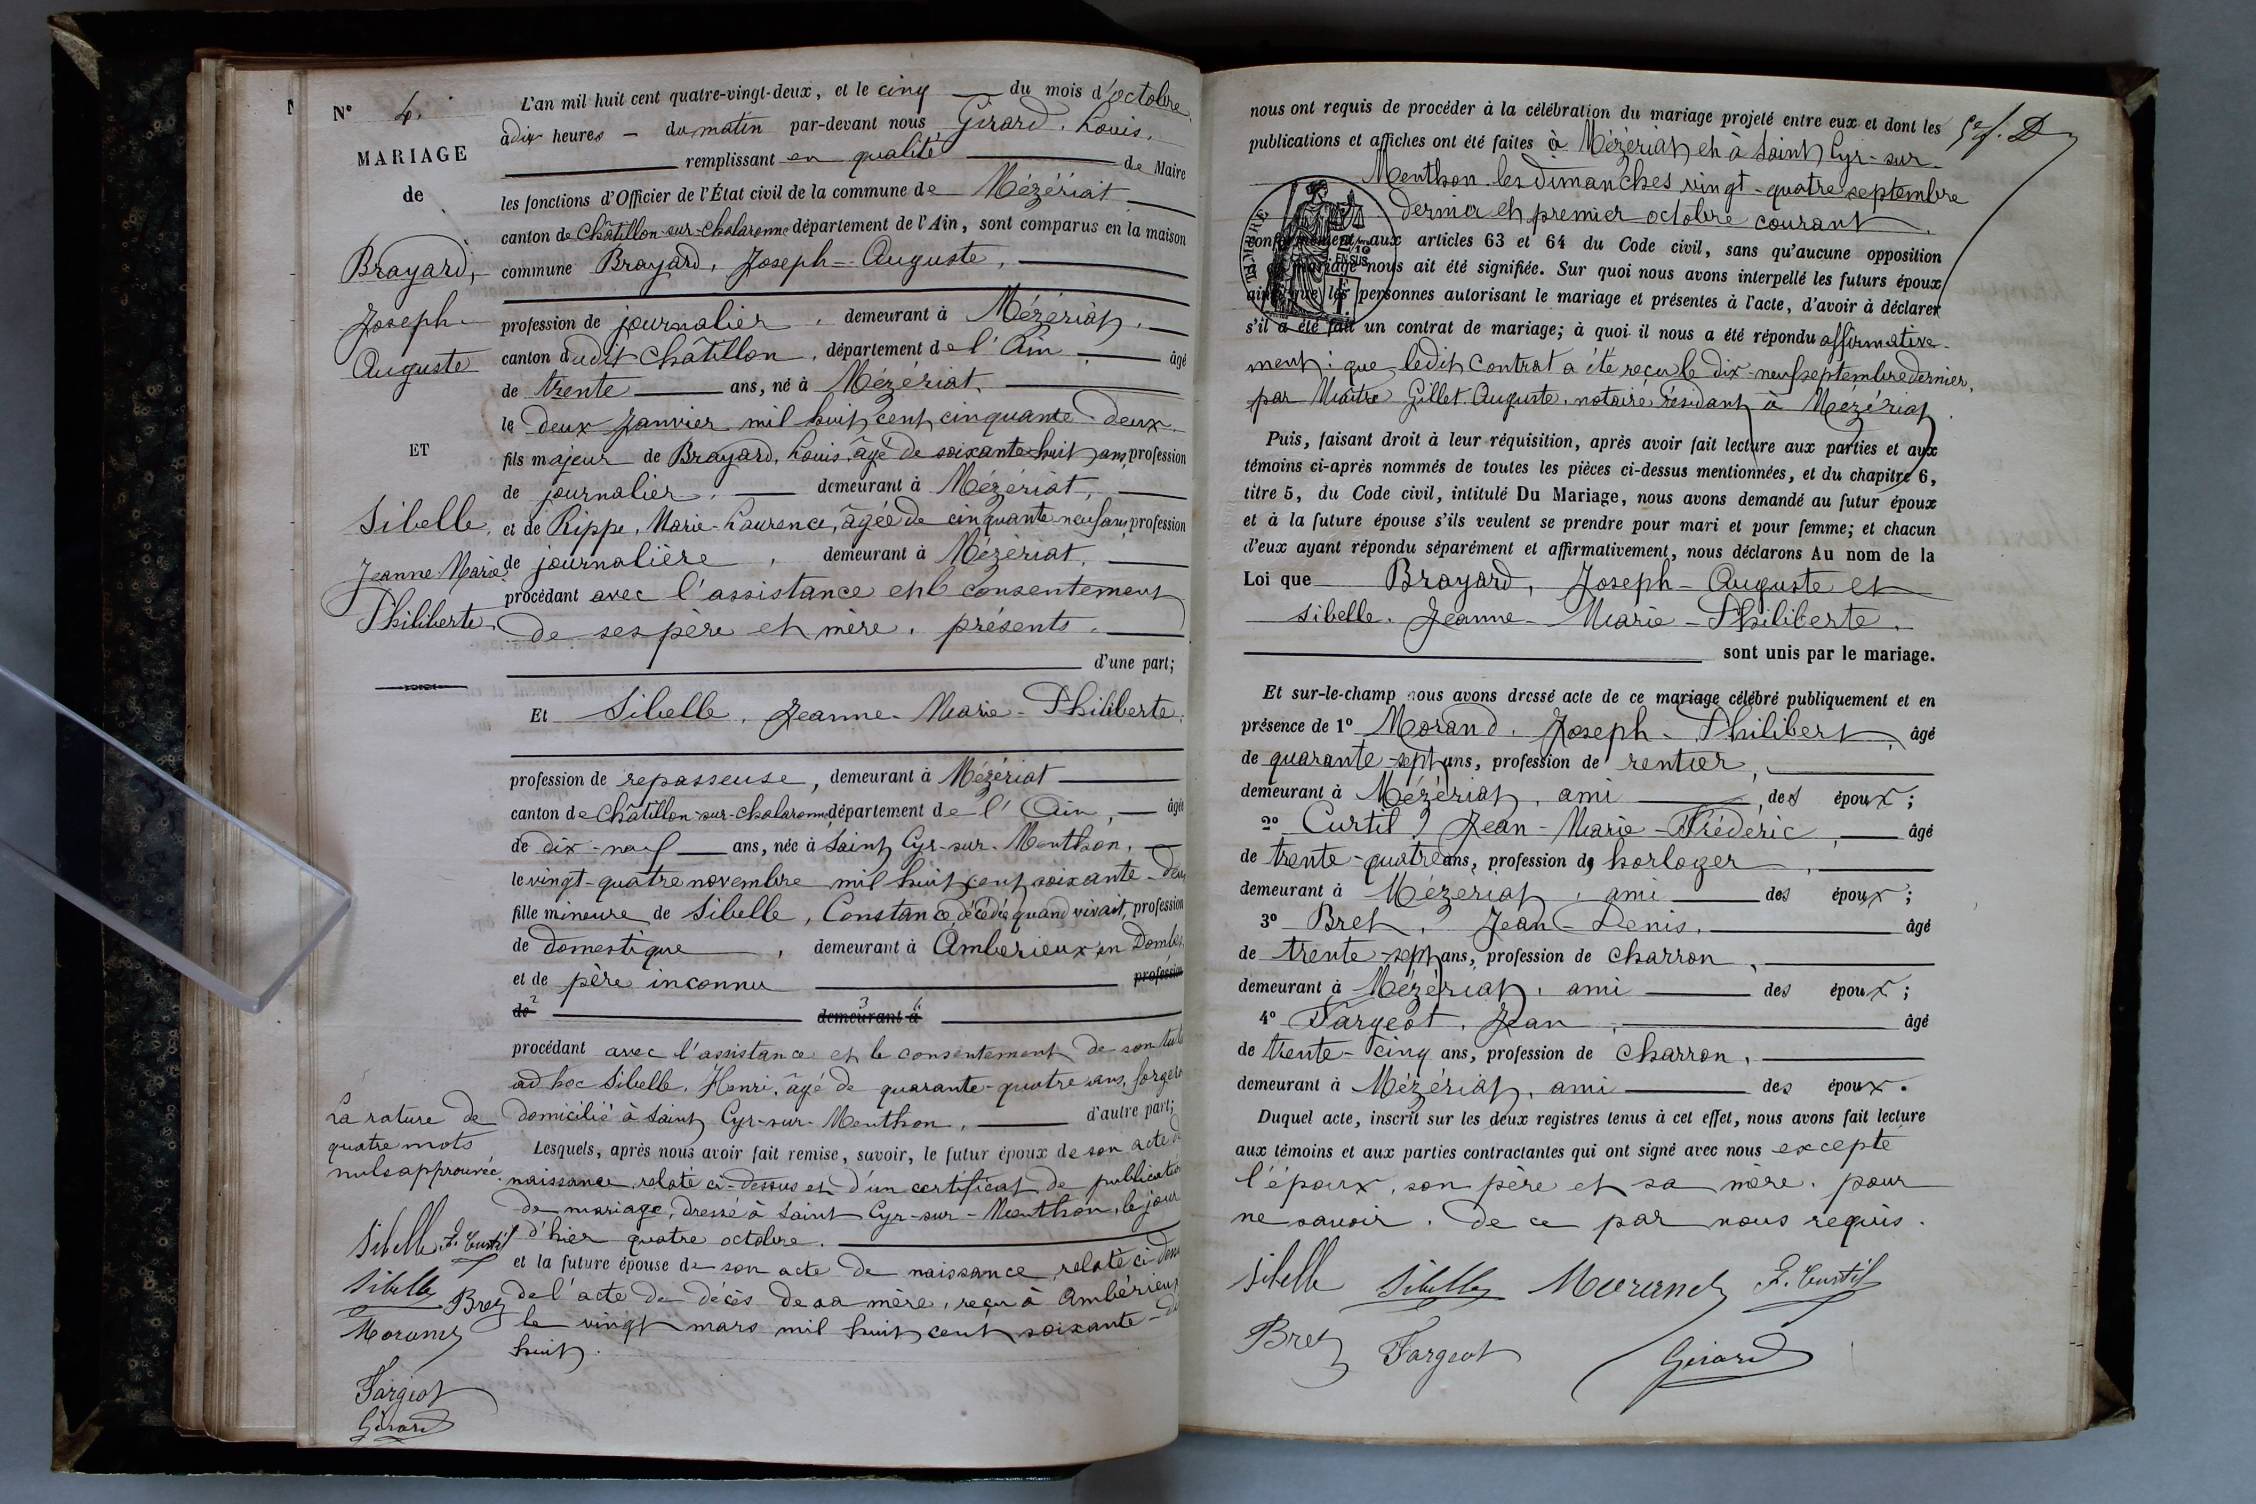 Nº 4.
MARIAGE
de
Brayard,
Joseph-
Auguste
ET
Sibelle,
Jeanne-Marie-
Philiberte
L'an mil huit cent quatre-vingt-deux, et le cinq du mois d'octobre
à dix heures - du matin par-devant nous Girard, Louis,
remplissant en qualité de Maire
les fonctions d'Officier de l'État civil de la commune de Mézériat
canton de Châtillon-sur-Chalaronne département de l'Ain, sont comparus en la maison
commune Brayard, Joseph-Auguste,
profession de journalier, demeurant à Mézériat,
canton dudit Châtillon, département de l'Ain, âgé
de trente ans, né à Mézériat,
le deux Janvier mil huit cent cinquante-deux
fils majeur de Brayard, Louis, âgé de soixante-huit ans, profession
de journalier, demeurant à Mézériat,
et de Rippe, Marie-Laurence, âgée de cinquante-neuf ans, profession
de journalière, demeurant à Mézériat,
procédant avec l'assistance et le consentement
de ses père et mère, présents.
d'une part;
Et Sibelle, Jeanne-Marie-Philiberte,
profession de repasseuse, demeurant à Mézériat
canton de Châtillon-sur-Chalaronne département de l'Ain, âgée
de dix-neuf ans, née à Saint Cyr-sur-Menthon,
le vingt-quatre novembre mil huit cent soixante-deux
fille mineure de Sibelle, Constance décédée quand vivait, profession
de domestique, demeurant à Ambérieux en Dombes
et de père inconnu profession
de 2 demeurant 3 à 4
procédant avec l'assistance et le consentement de son tuteur
ad hoc Sibelle, Henri, âgé de quarante-quatre ans, forgeron
domicilié à Saint Cyr-sur-Menthon, d'autre part;
Lesquels, après nous avoir fait remise, savoir, le futur époux de son acte de
naissance, relaté ci-dessus et d'un certificat de publication
de mariage, dressé à Saint Cyr-sur-Menthon, le jour
d'hier quatre octobre.
et la future épouse de son acte de naissance, relaté ci-dessus
de l'acte de décès de sa mère, reçu à Ambérieux
le vingt mars mil huit cent soixante-dix
huit.
La rature de
quatre mots
nuls approuvée.
Sibelle F. Curtil
Sibelle Bret
Morand
Fargeot
Girard
nous ont requis de procéder à la célébration du mariage projeté entre eux et dont les
publications et affiches ont été faites à Mézériat et à Saint Cyr-sur-
Menthon les dimanches vingt-quatre septembre
dernier et premier octobre courant
conformément aux articles 63 et 64 du Code civil, sans qu'aucune opposition
au mariage nous ait été signifiée. Sur quoi nous avons interpellé les futurs époux,
ainsi que les personnes autorisant le mariage et présentes à l'acte, d'avoir à déclarer
s'il a été fait un contrat de mariage; à quoi il nous a été répondu affirmative-
ment: que ledit contrat a été reçu le dix-neuf septembre dernier,
par Maître Gillet Auguste, notaire résidant à Mézériat.
TIMBRE
2/10
EN SUS
Puis, faisant droit à leur réquisition, après avoir fait lecture aux parties et aux
témoins ci-après nommés de toutes les pièces ci-dessus mentionnées, et du chapitre 6,
titre 5, du Code civil, intitulé Du Mariage, nous avons demandé au futur époux
et à la future épouse s'ils veulent se prendre pour mari et pour femme; et chacun
d'eux ayant répondu séparément et affirmativement, nous déclarons Au nom de la
Loi que Brayard, Joseph-Auguste et
Sibelle, Jeanne-Marie-Philiberte,
sont unis par le mariage.
Et sur-le-champ nous avons dressé acte de ce mariage célébré publiquement et en
présence de 1º Morand, Joseph-Philibert, âgé
de quarante-sept ans, profession de rentier,
demeurant à Mézériat, ami, des époux;
2º Curtil, Jean-Marie-Frédéric, âgé
de trente-quatre ans, profession de horloger,
demeurant à Mézériat, ami des époux;
3º Bret, Jean-Denis, âgé
de trente-sept ans, profession de charron,
demeurant à Mézériat, ami des époux;
4º Fargeot, Jean, âgé
de trente-cinq ans, profession de charron,
demeurant à Mézériat, ami des époux.
Duquel acte, inscrit sur les deux registres tenus à cet effet, nous avons fait lecture
aux témoins et aux parties contractantes qui ont signé avec nous excepté
l'époux, son père et sa mère, pour
ne savoir. De ce par nous requis.
Sibelle Sibelle Morand F. Curtil
Bret Fargeot Girard